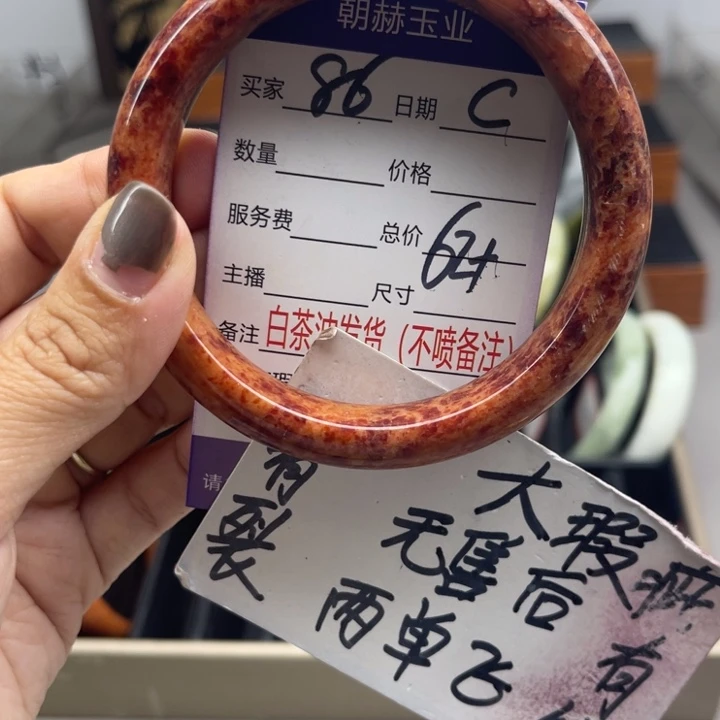 朝赫玉业
买家 86 日期 C
数量 价格
服务费 总价 64
主播 尺寸
备注 白茶油发货（不喷备注）
请
有裂
大瑕疵 有
无售后
两单飞